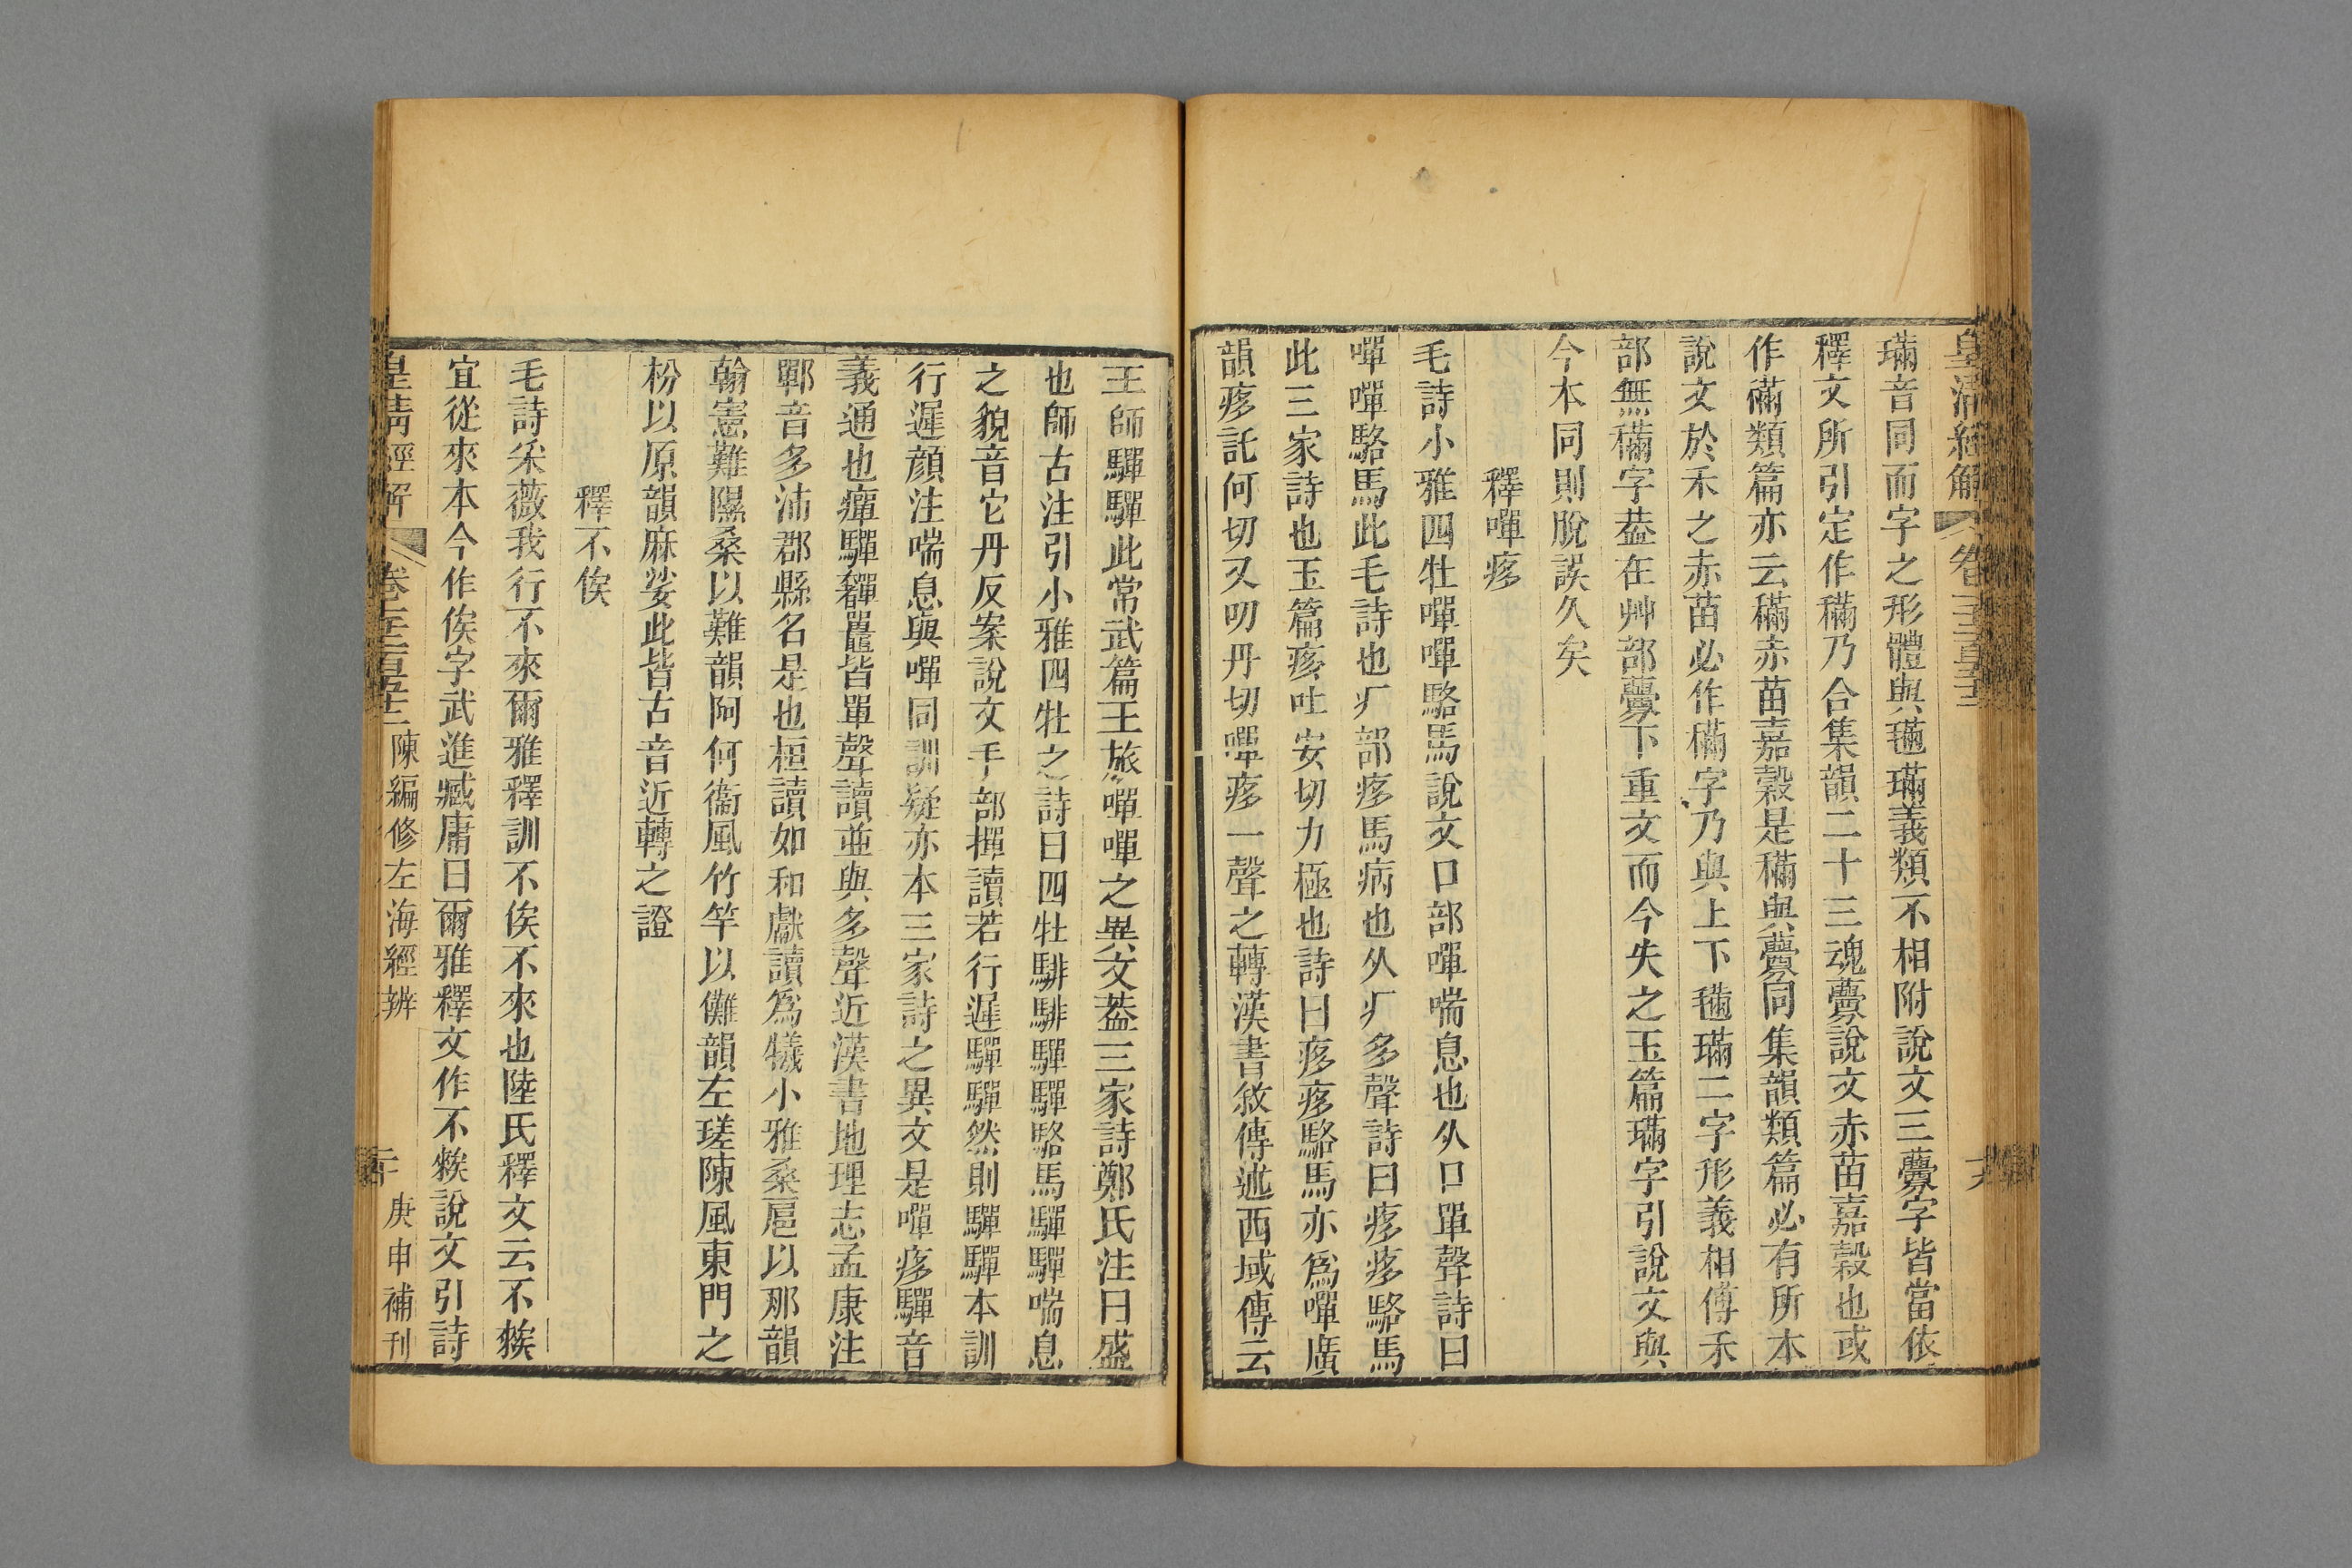 皇清經解 卷一千二百五十二
璊音同而字之形體與毧璊義類不相附說文三虋字皆當依
釋文所引定作穈乃合集韻二十三魂虋說文赤苗嘉穀也或
作穈類篇亦云穈赤苗嘉穀是穈與虋同集韻類篇必有所本
說文於禾之赤苗必作穈字乃與上下毧璊二字形義相傅禾
部無穈字葢在艸部虋下重文而今失之玉篇璊字引說文與
今本同則脫誤久矣
釋嘽痑
毛詩小雅四牡嘽嘽駱馬說文口部嘽喘息也从口單聲詩曰
嘽嘽駱馬此毛詩也疒部痑馬病也从疒多聲詩曰痑痑駱馬
此三家詩也玉篇痑吐安切力極也詩曰痑痑駱馬亦爲嘽廣
韻痑託何切又叨丹切嘽痑一聲之轉漢書敘傳述西域傳云
王師驒驒此常武篇王旅嘽嘽之異文葢三家詩鄭氏注曰盛
也師古注引小雅四牡之詩曰四牡騑騑驒驒駱馬驒驒喘息
之貌音它丹反案說文手部撣讀若行遲驒驒然則驒驒本訓
行遲顏注喘息與嘽同訓疑亦本三家詩之異文是嘽痑驒音
義通也瘅驒奲鼉皆單聲讀並與多聲近漢書地理志孟康注
鄲音多沛郡縣名是也桓讀如和獻讀爲犧小雅桑扈以那韻
翰憲難隰桑以難韻阿何衞風竹竿以儺韻左瑳陳風東門之
枌以原韻麻娑此皆古音近轉之證
釋不俟
毛詩采薇我行不來爾雅釋訓不俟不來也陸氏釋文云不䅗
宜從來本今作俟字武進臧庸曰爾雅釋文作不䅗說文引詩
皇清經解 卷一千二百五十二 陳編修左海經辨 二十 庚申補刊